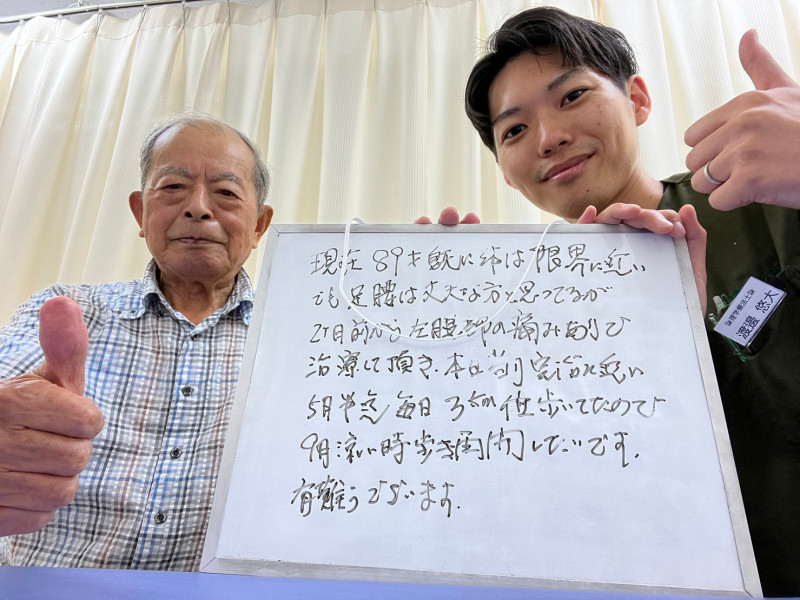 現在 89才 既に体は限界に近い
でも足腰は丈夫な方と思ってるが
2ヶ月前から左股部の痛みあり
治療して頂き、本日 完治に近い
5月 毎日 3 位歩いてたので
9月涼い時歩き再開したいです。
有難うございます。
理学療法士
渡邉 悠大